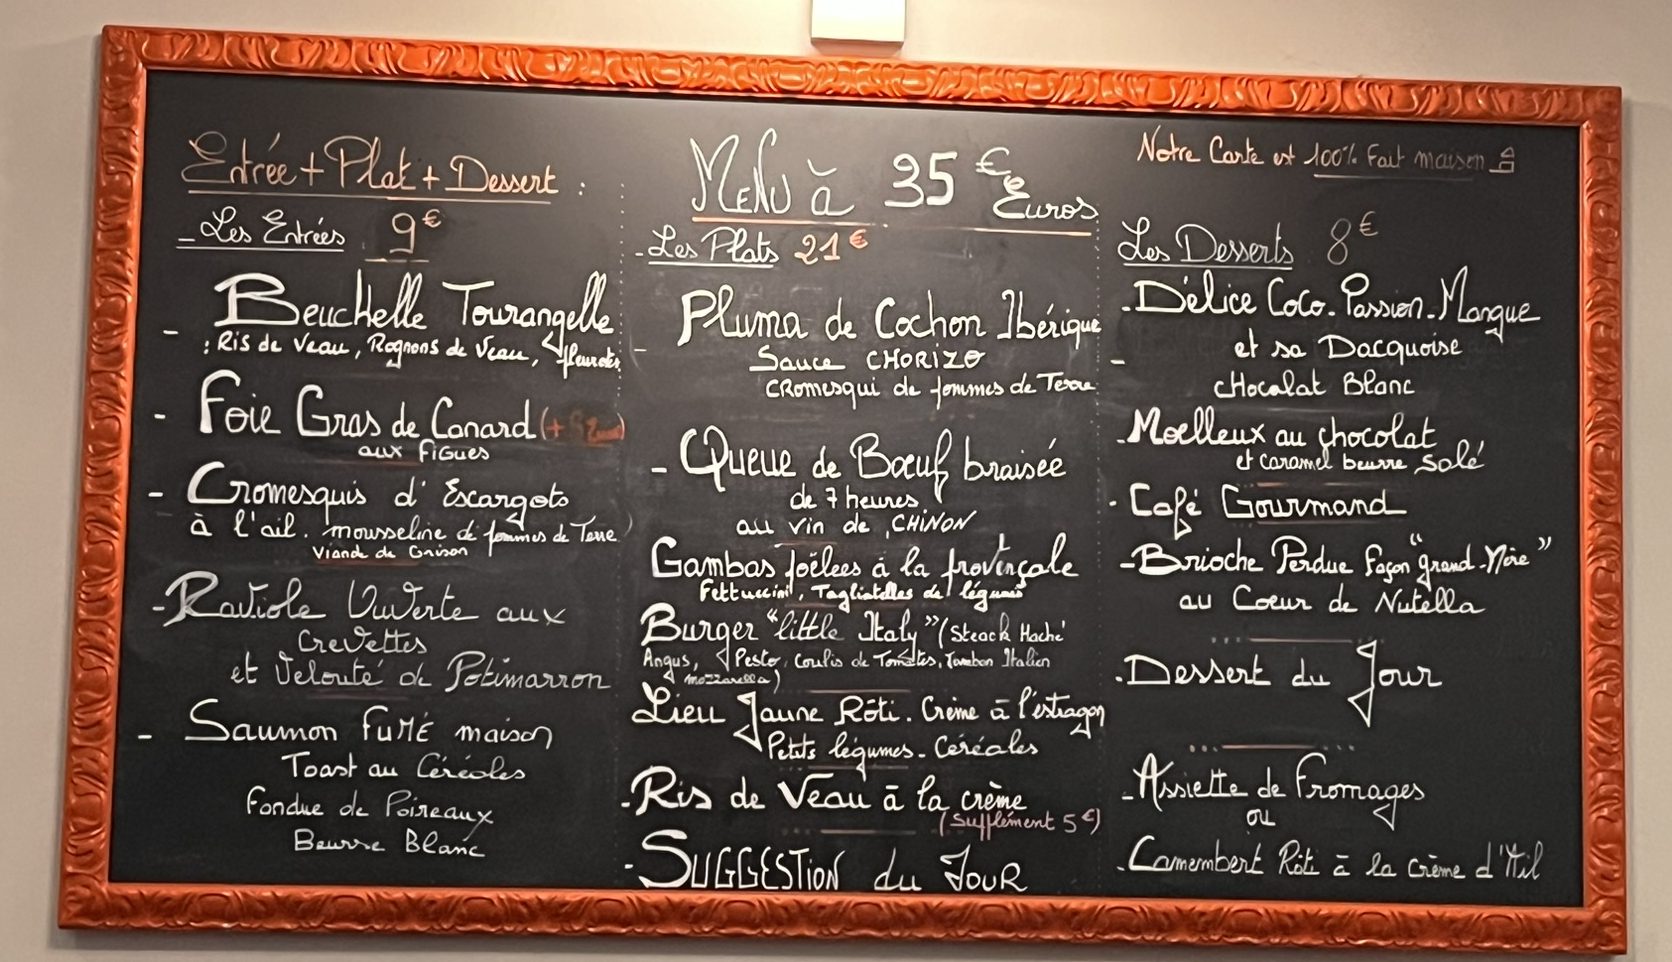 Entrée + Plat + Dessert :
Menu à 35 € Euros
Notre Carte est 100% Fait maison
- Les Entrées 9€
- Beuchelle Tourangelle
: Ris de Veau, Rognons de Veau,
- Foie Gras de Canard
aux Figues
- Cromesquis d'Escargots
à l'ail. mousseline de pommes de Terre
Viande de Grison
- Raviole Ouverte aux
Crevettes
et Velouté de Potimarron
- Saumon Fumé maison
Toast au Céréales
Fondue de Poireaux
Beurre Blanc
- Les Plats 21€
- Pluma de Cochon Ibérique
Sauce CHORIZO
CRomesqui de pommes de Terre
- Queue de Bœuf braisée
de 7 heures
au vin de CHINON
Gambas poêlées à la provençale
Fettuccini, Tagliatelles de légumes
Burger "little Italy" (Steack Haché
Angus, Pesto, Coulis de Tomates, Jambon Italien
mozzarella)
Lieu Jaune Rôti. Crème à l'estragon
Petits légumes - Céréales
- Ris de Veau à la crème
(Supplément 5€)
- SUGGESTION du JOUR
Les Desserts 8€
- Délice Coco - Passion - Mangue
et sa Dacquoise
chocolat Blanc
- Moelleux au chocolat
et caramel beurre salé
- Café Gourmand
- Brioche Perdue façon "grand-Mère"
au Coeur de Nutella
- Dessert du Jour
- Assiette de Fromages
ou
- Camembert Rôti à la crème d'Ail